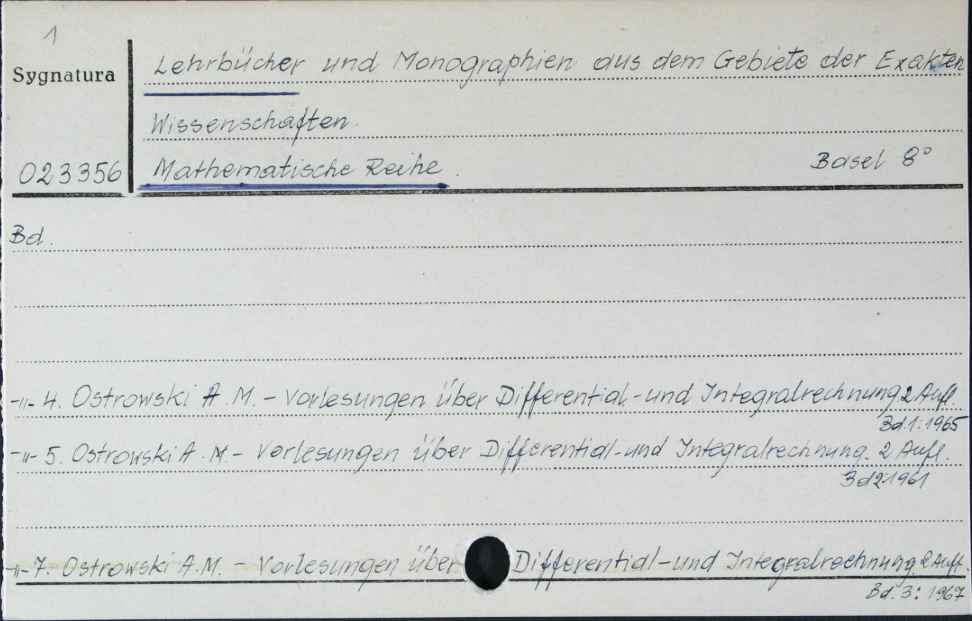 1
Sygnatura
Lehrbücher und Monographien aus dem Gebiete der Exakten
Wissenschaften.
023356
Mathematische Reihe.
Basel 8°
Bd.
-"- 4. Ostrowski A. M. - Vorlesungen über Differential-und Integralrechnung 2 Aufl.
Bd.1.1965
-"- 5. Ostrowski A. M - Vorlesungen über Differential-und Integralrechnung. 2 Aufl.
Bd 2.1961
-"- 7. Ostrowski A.M. - Vorlesungen über Differential-und Integralrechnung, 2 Aufl.
Bd. 3: 1967